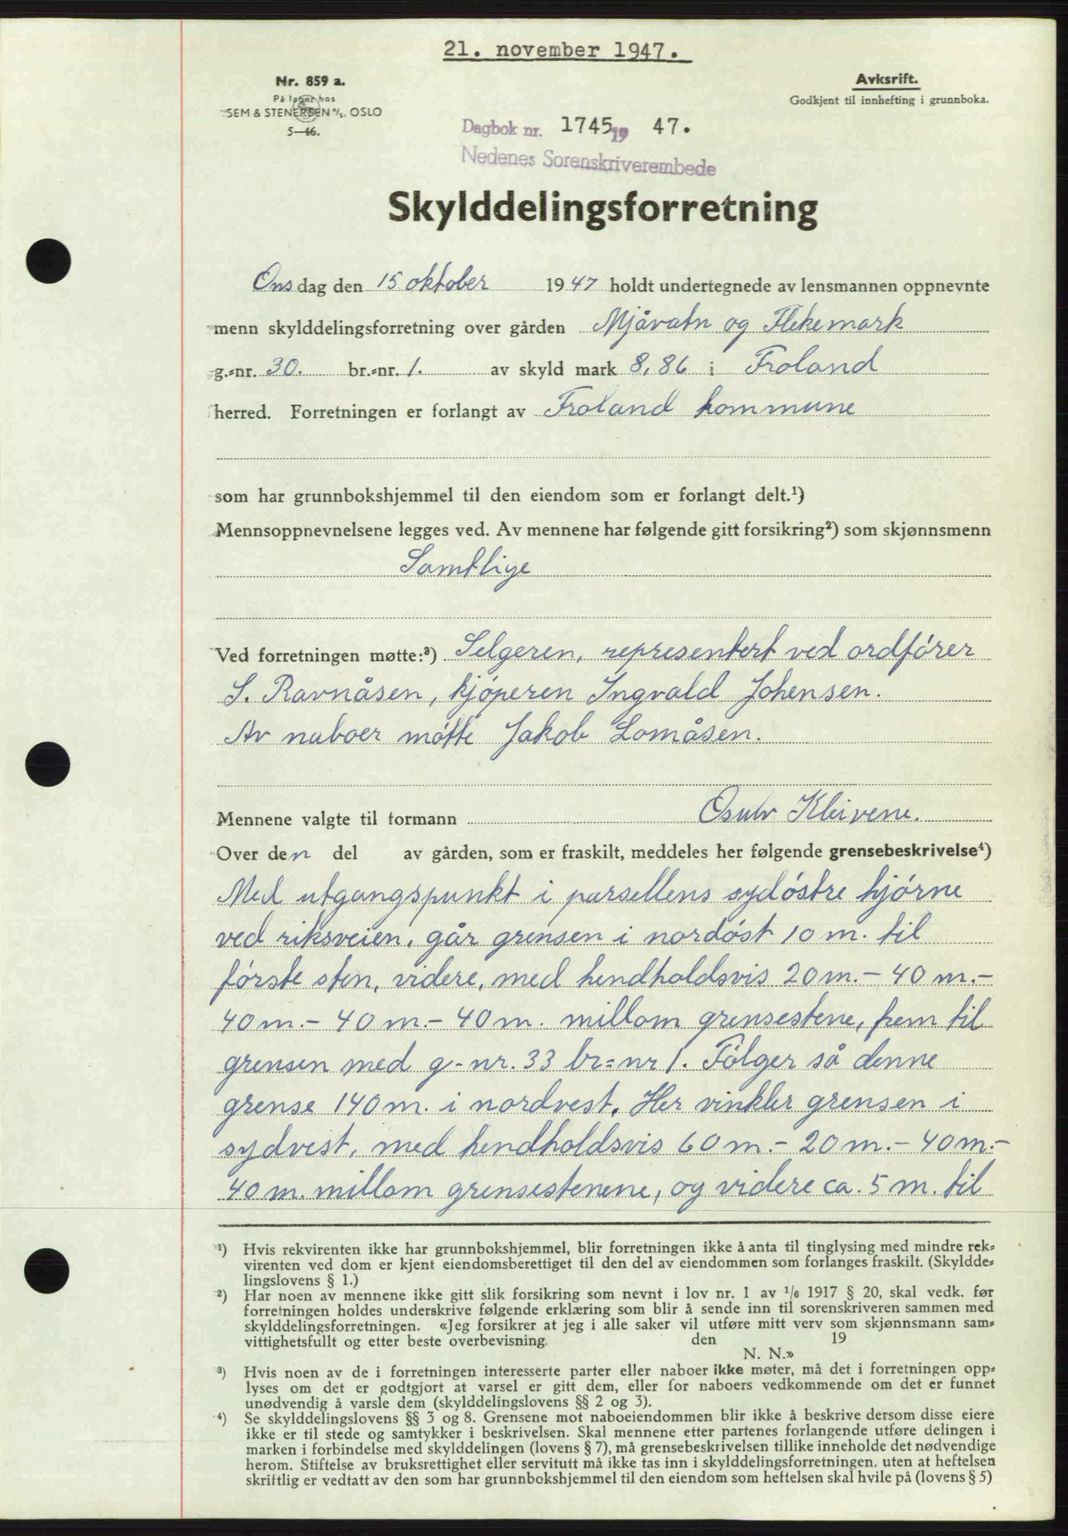 21. november 1947.
Nr. 859 a.
På lager hos
SEM & STENERSEN A/S, OSLO
5—46.
Avskrift.
Godkjent til innhefting i grunnboka.
Dagbok nr. 1745 19 47.
Nedenes Sorenskriverembede
Skylddelingsforretning
Onsdag den 15 oktober 1947 holdt undertegnede av lensmannen oppnevnte
menn skylddelingsforretning over gården Mjåvatn og Flekemark
g.-nr. 30. br.-nr. 1. av skyld mark 8,86 i Froland
herred. Forretningen er forlangt av Froland kommune
som har grunnbokshjemmel til den eiendom som er forlangt delt.¹)
Mennsoppnevnelsene legges ved. Av mennene har følgende gitt forsikring²) som skjønnsmenn
Samtlige
Ved forretningen møtte:³) Selgeren, representert ved ordfører
S. Ravnåsen, kjøperen Ingvald Johensen.
Av naboer møtte Jakob Lomåsen.
Mennene valgte til formann Osulv Kleivene.
Over den del av gården, som er fraskilt, meddeles her følgende grensebeskrivelse⁴)
Med utgangspunkt i parsellens sydøstre hjørne
ved riksveien, går grensen i nordøst 10 m. til
første sten, videre, med hendholdsvis 20 m. – 40 m. –
40 m. – 40 m. – 40 m. millom grensestene, frem til
grensen med g-nr. 33 br=nr 1. Følger så denne
grense 140 m. i nordvest. Her vinkler grensen i
sydvest, med hendholdsvis 60 m. – 20 m. – 40 m. –
40 m. millom grensestenene, og videre ca. 5 m. til
¹) Hvis rekvirenten ikke har grunnbokshjemmel, blir forretningen ikke å anta til tinglysing med mindre rek-
virenten ved dom er kjent eiendomsberettiget til den del av eiendommen som forlanges fraskilt. (Skyldde-
lingslovens § 1.)
²) Har noen av mennene ikke gitt slik forsikring som nevnt i lov nr. 1 av 1/6 1917 § 20, skal vedk. før
forretningen holdes underskrive følgende erklæring som blir å sende inn til sorenskriveren sammen med
skylddelingsforretningen. «Jeg forsikrer at jeg i alle saker vil utføre mitt verv som skjønnsmann sam-
vittighetsfullt og etter beste overbevisning. den 19
N. N.»
³) Hvis noen av de i forretningen interesserte parter eller naboer ikke møter, må det i forretningen opp-
lyses om det er godtgjort at varsel er gitt dem, eller for naboers vedkommende om det er funnet
unødvendig å varsle dem (skylddelingslovens §§ 2 og 3).
⁴) Se skylddelingslovens §§ 3 og 8. Grensene mot naboeiendommen blir ikke å beskrive dersom disse eiere
ikke er til stede og samtykker i beskrivelsen. Skal mennene etter partenes forlangende utføre delingen i
marken i forbindelse med skylddelingen (lovens § 7), må grensebeskrivelsen tillike inneholde det nødvendige
herom. Stiftelse av bruksrettighet eller servitutt må ikke tas inn i skylddelingsforretningen, uten at heftelsen
skriftlig er vedtatt av den som har grunnbokshjemmel til den eiendom som heftelsen skal hvile på (lovens § 5)